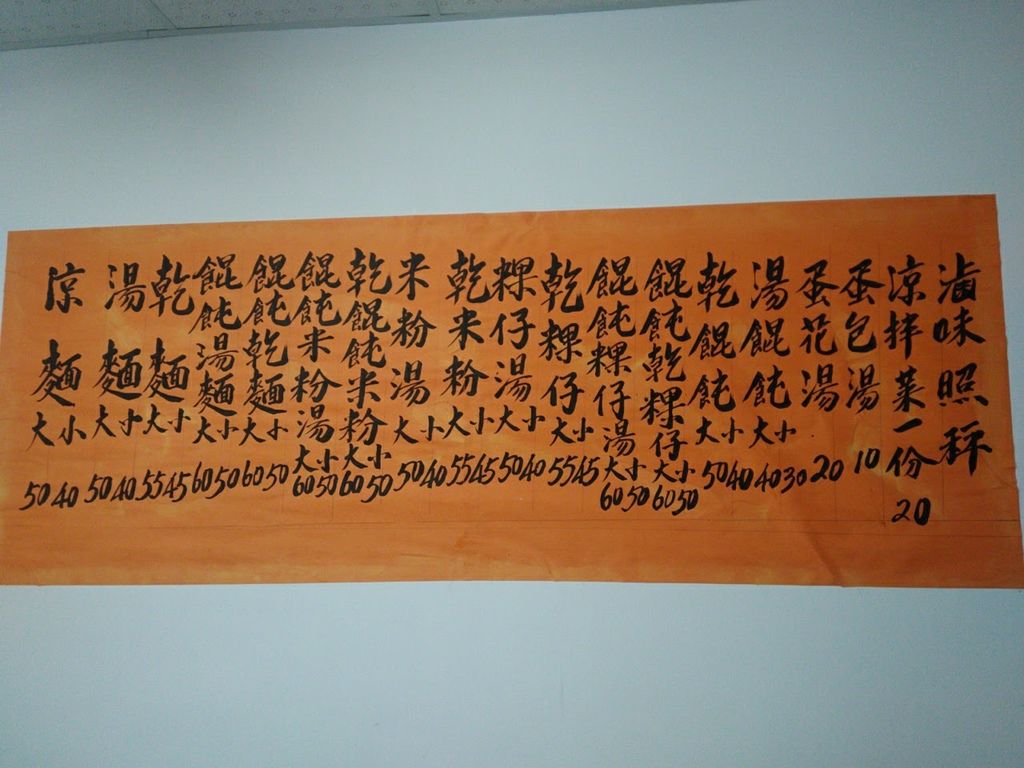 涼麵大小 50 40
湯麵大小 50 40
乾麵大小 55 45
餛飩湯麵大小 60 50
餛飩乾麵大小 60 50
餛飩米粉湯大小 60 50
乾餛飩米粉大小 60 50
米粉湯大小 50 40
乾米粉大小 55 45
粿仔湯大小 50 40
乾粿仔大小 55 45
餛飩粿仔湯大小 60 50
餛飩乾粿仔大小 60 50
乾餛飩大小 50 40
湯餛飩大小 40 30
蛋花湯 20
蛋包湯 10
涼拌菜一份 20
滷味照秤